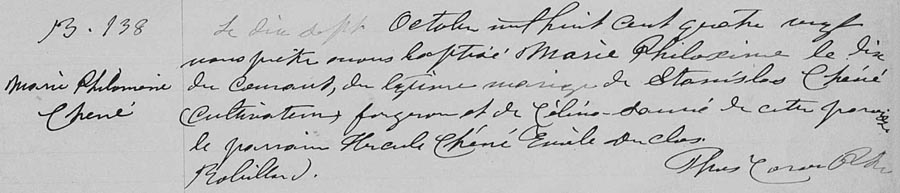 B. 138
Marie Philomène
Chené
Le dix sept Octobre mil huit cent quatre vingt
nous prêtre avons baptisé Marie Philoxime le dix
du courant, du légitime mariage de Stanislas Chéné
(Cultivateur) forgeron et de Célina de cette paroisse
le parrain Hercule Chéné Emélie Duclos
Robillard.